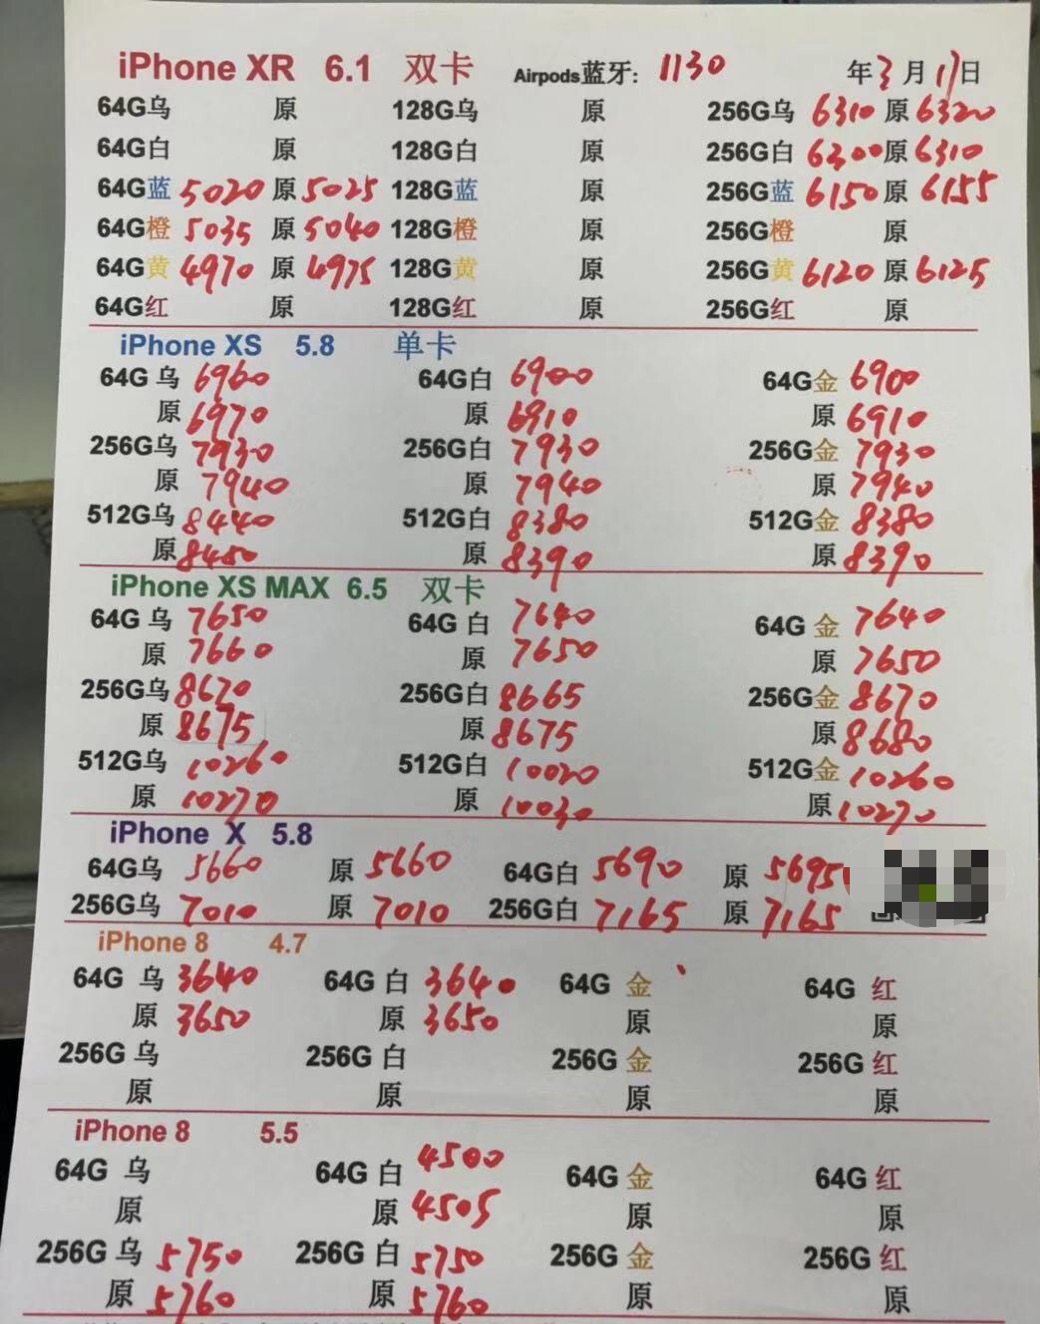 iPhone XR 6.1 双卡 Airpods蓝牙: 1130 年3月17日
64G乌 原 128G乌 原 256G乌 6310 原 6320
64G白 原 128G白 原 256G白 6300 原 6310
64G蓝 5020 原 5025 128G蓝 原 256G蓝 6150 原 6155
64G橙 5035 原 5040 128G橙 原 256G橙 原
64G黄 4970 原 4975 128G黄 原 256G黄 6120 原 6125
64G红 原 128G红 原 256G红 原
iPhone XS 5.8 单卡
64G 乌 6960 64G白 6900 64G金 6900
原 6970 原 6910 原 6910
256G乌 7930 256G白 7930 256G金 7930
原 7940 原 7940 原 7940
512G乌 8440 512G白 8380 512G金 8380
原 8450 原 8390 原 8390
iPhone XS MAX 6.5 双卡
64G 乌 7650 64G 白 7640 64G 金 7640
原 7660 原 7650 原 7650
256G乌 8670 256G白 8665 256G金 8670
原 8675 原 8675 原 8680
512G乌 10260 512G白 10020 512G金 10260
原 10270 原 10030 原 10270
iPhone X 5.8
64G乌 5660 原 5660 64G白 5690 原 5695
256G乌 7010 原 7010 256G白 7165 原 7165
iPhone 8 4.7
64G 乌 3640 64G 白 3640 64G 金 64G 红
原 3650 原 3650 原 原
256G 乌 256G 白 256G 金 256G 红
原 原 原 原
iPhone 8 5.5
64G 乌 64G 白 4500 64G 金 64G 红
原 原 4505 原 原
256G 乌 5750 256G 白 5750 256G 金 256G 红
原 5760 原 5760 原 原